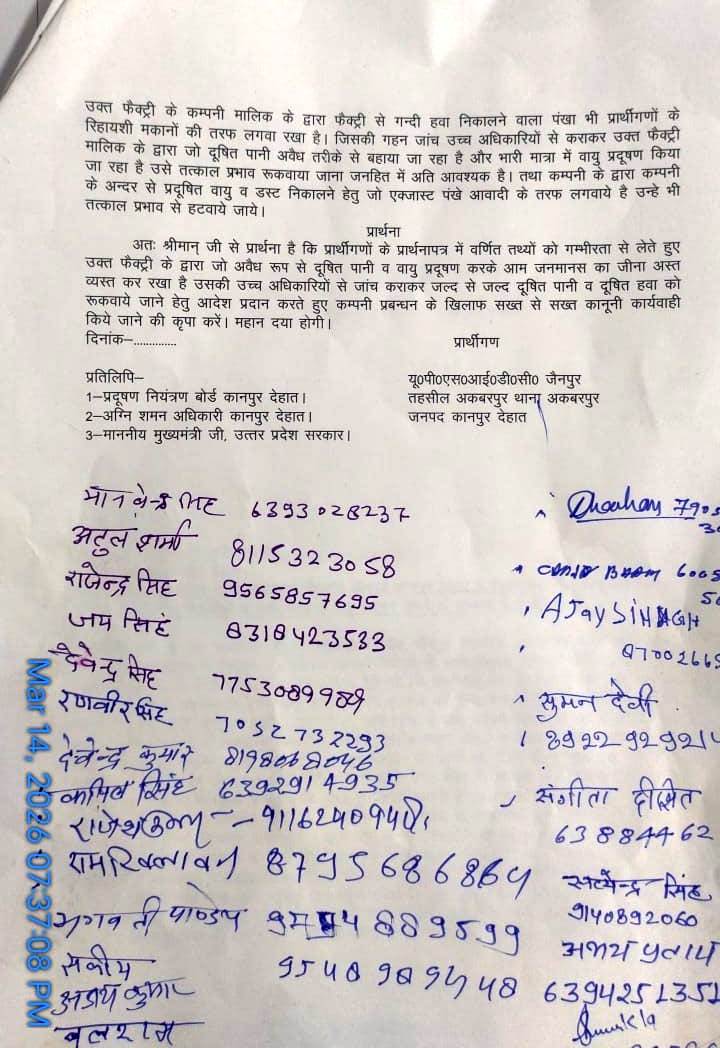 उक्त फैक्ट्री के कम्पनी मालिक के द्वारा फैक्ट्री से गन्दी हवा निकालने वाला पंखा भी प्रार्थीगणों के
रिहायशी मकानों की तरफ लगवा रखा है। जिसकी गहन जांच उच्च अधिकारियों से कराकर उक्त फैक्ट्री
मालिक के द्वारा जो दूषित पानी अवैध तरीके से बहाया जा रहा है और भारी मात्रा में वायु प्रदूषण किया
जा रहा है उसे तत्काल प्रभाव रूकवाया जाना जनहित में अति आवश्यक है। तथा कम्पनी के द्वारा कम्पनी
के अन्दर से प्रदूषित वायु व डस्ट निकालने हेतु जो एक्जास्ट पंखे आवादी के तरफ लगवाये है उन्हे भी
तत्काल प्रभाव से हटवाये जाये।
प्रार्थना
अतः श्रीमान् जी से प्रार्थना है कि प्रार्थीगणों के प्रार्थनापत्र में वर्णित तथ्यों को गम्भीरता से लेते हुए
उक्त फैक्ट्री के द्वारा जो अवैध रूप से दूषित पानी व वायु प्रदूषण करके आम जनमानस का जीना अस्त
व्यस्त कर रखा है उसकी उच्च अधिकारियों से जांच कराकर जल्द से जल्द दूषित पानी व दूषित हवा को
रूकवाये जाने हेतु आदेश प्रदान करते हुए कम्पनी प्रबन्धन के खिलाफ सख्त से सख्त कानूनी कार्यवाही
किये जाने की कृपा करें। महान दया होगी।
दिनांक–..............
प्रार्थीगण
प्रतिलिपि–
1–प्रदूषण नियंत्रण बोर्ड कानपुर देहात।
2–अग्नि शमन अधिकारी कानपुर देहात।
3–माननीय मुख्यमंत्री जी, उत्तर प्रदेश सरकार।
यू०पी०एस०आई०डी०सी० जैनपुर
तहसील अकबरपुर थाना अकबरपुर
जनपद कानपुर देहात
सिंह 6393028237
अतुल शर्मा 8115323058
राजेन्द्र सिंह 9565857695
जय सिहं 8318423533
देवेन्द्र सिंह
रणवीर सिंह 7052732293
देवेन्द्र कुमार
कपिल सिंह 6392914935
8795686864
भगवती पाण्डेय
अजय कुमार
बलराम
7905
6005
AJaySINGH
87002665
सुमन देवी
संगीता दीक्षित
63884462
सत्येन्द्र सिंह
9140892060
अभय प्रताप
6394251351
Mar 14, 2026 07:37:08 PM